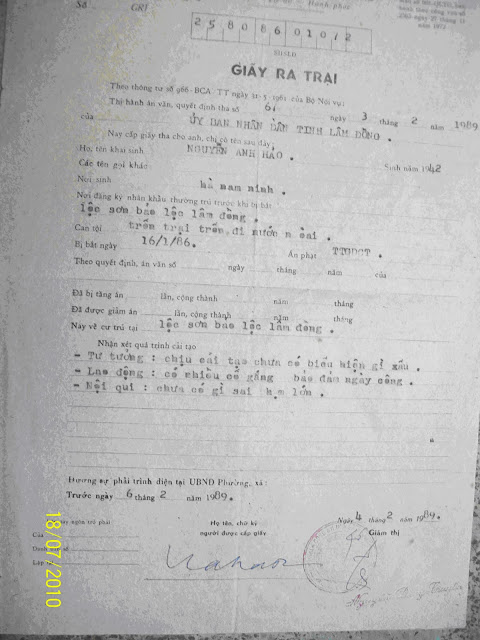 Số GRT
Hạnh phúc
2 5 8 0 8 6 0 1 0 / 2
GIẤY RA TRẠI
Theo thông tư số 966-BCA/TT ngày 31-5-1961 của Bộ Nội vụ;
Thi hành án văn, quyết định tha số 6 ngày 3 tháng 2 năm 1989
của ỦY BAN NHÂN DÂN TỈNH LÂM ĐỒNG
Nay cấp giấy tha cho anh, chị có tên sau đây:
Họ, tên khai sinh NGUYỄN ANH HẢO. Sinh năm 1942
Các tên gọi khác
Nơi sinh hà nam ninh.
Nơi đăng ký nhân khẩu thường trú trước khi bị bắt
lộc sơn bảo lộc lâm đồng.
Can tội trốn trại trốn đi nước n oài.
Bị bắt ngày 16/1/86. Án phạt TTGDCT.
Theo quyết định, án văn số ngày tháng năm của
Đã bị tăng án lần, cộng thành năm tháng
Đã được giảm án lần, cộng thành năm tháng
Nay về cư trú tại lộc sơn bảo lộc lâm đồng.
Nhận xét quá trình cải tạo
- Tư tưởng : chịu cải tạo chưa có biểu hiện gì xấu.
- Lao động : có nhiều cố gắng bảo đảm ngày công.
- Nội qui : chưa có gì sai hạm lớn.
Hương sự phải trình diện tại UBND Phường, xã:
Trước ngày 6 tháng 2 năm 1989.
Lăn tay ngón trỏ phải Họ tên, chữ ký Ngày 4 tháng 2 năm 1989.
Của người được cấp giấy Giám thị
Danh bản số
Lập tại
18/07/2010